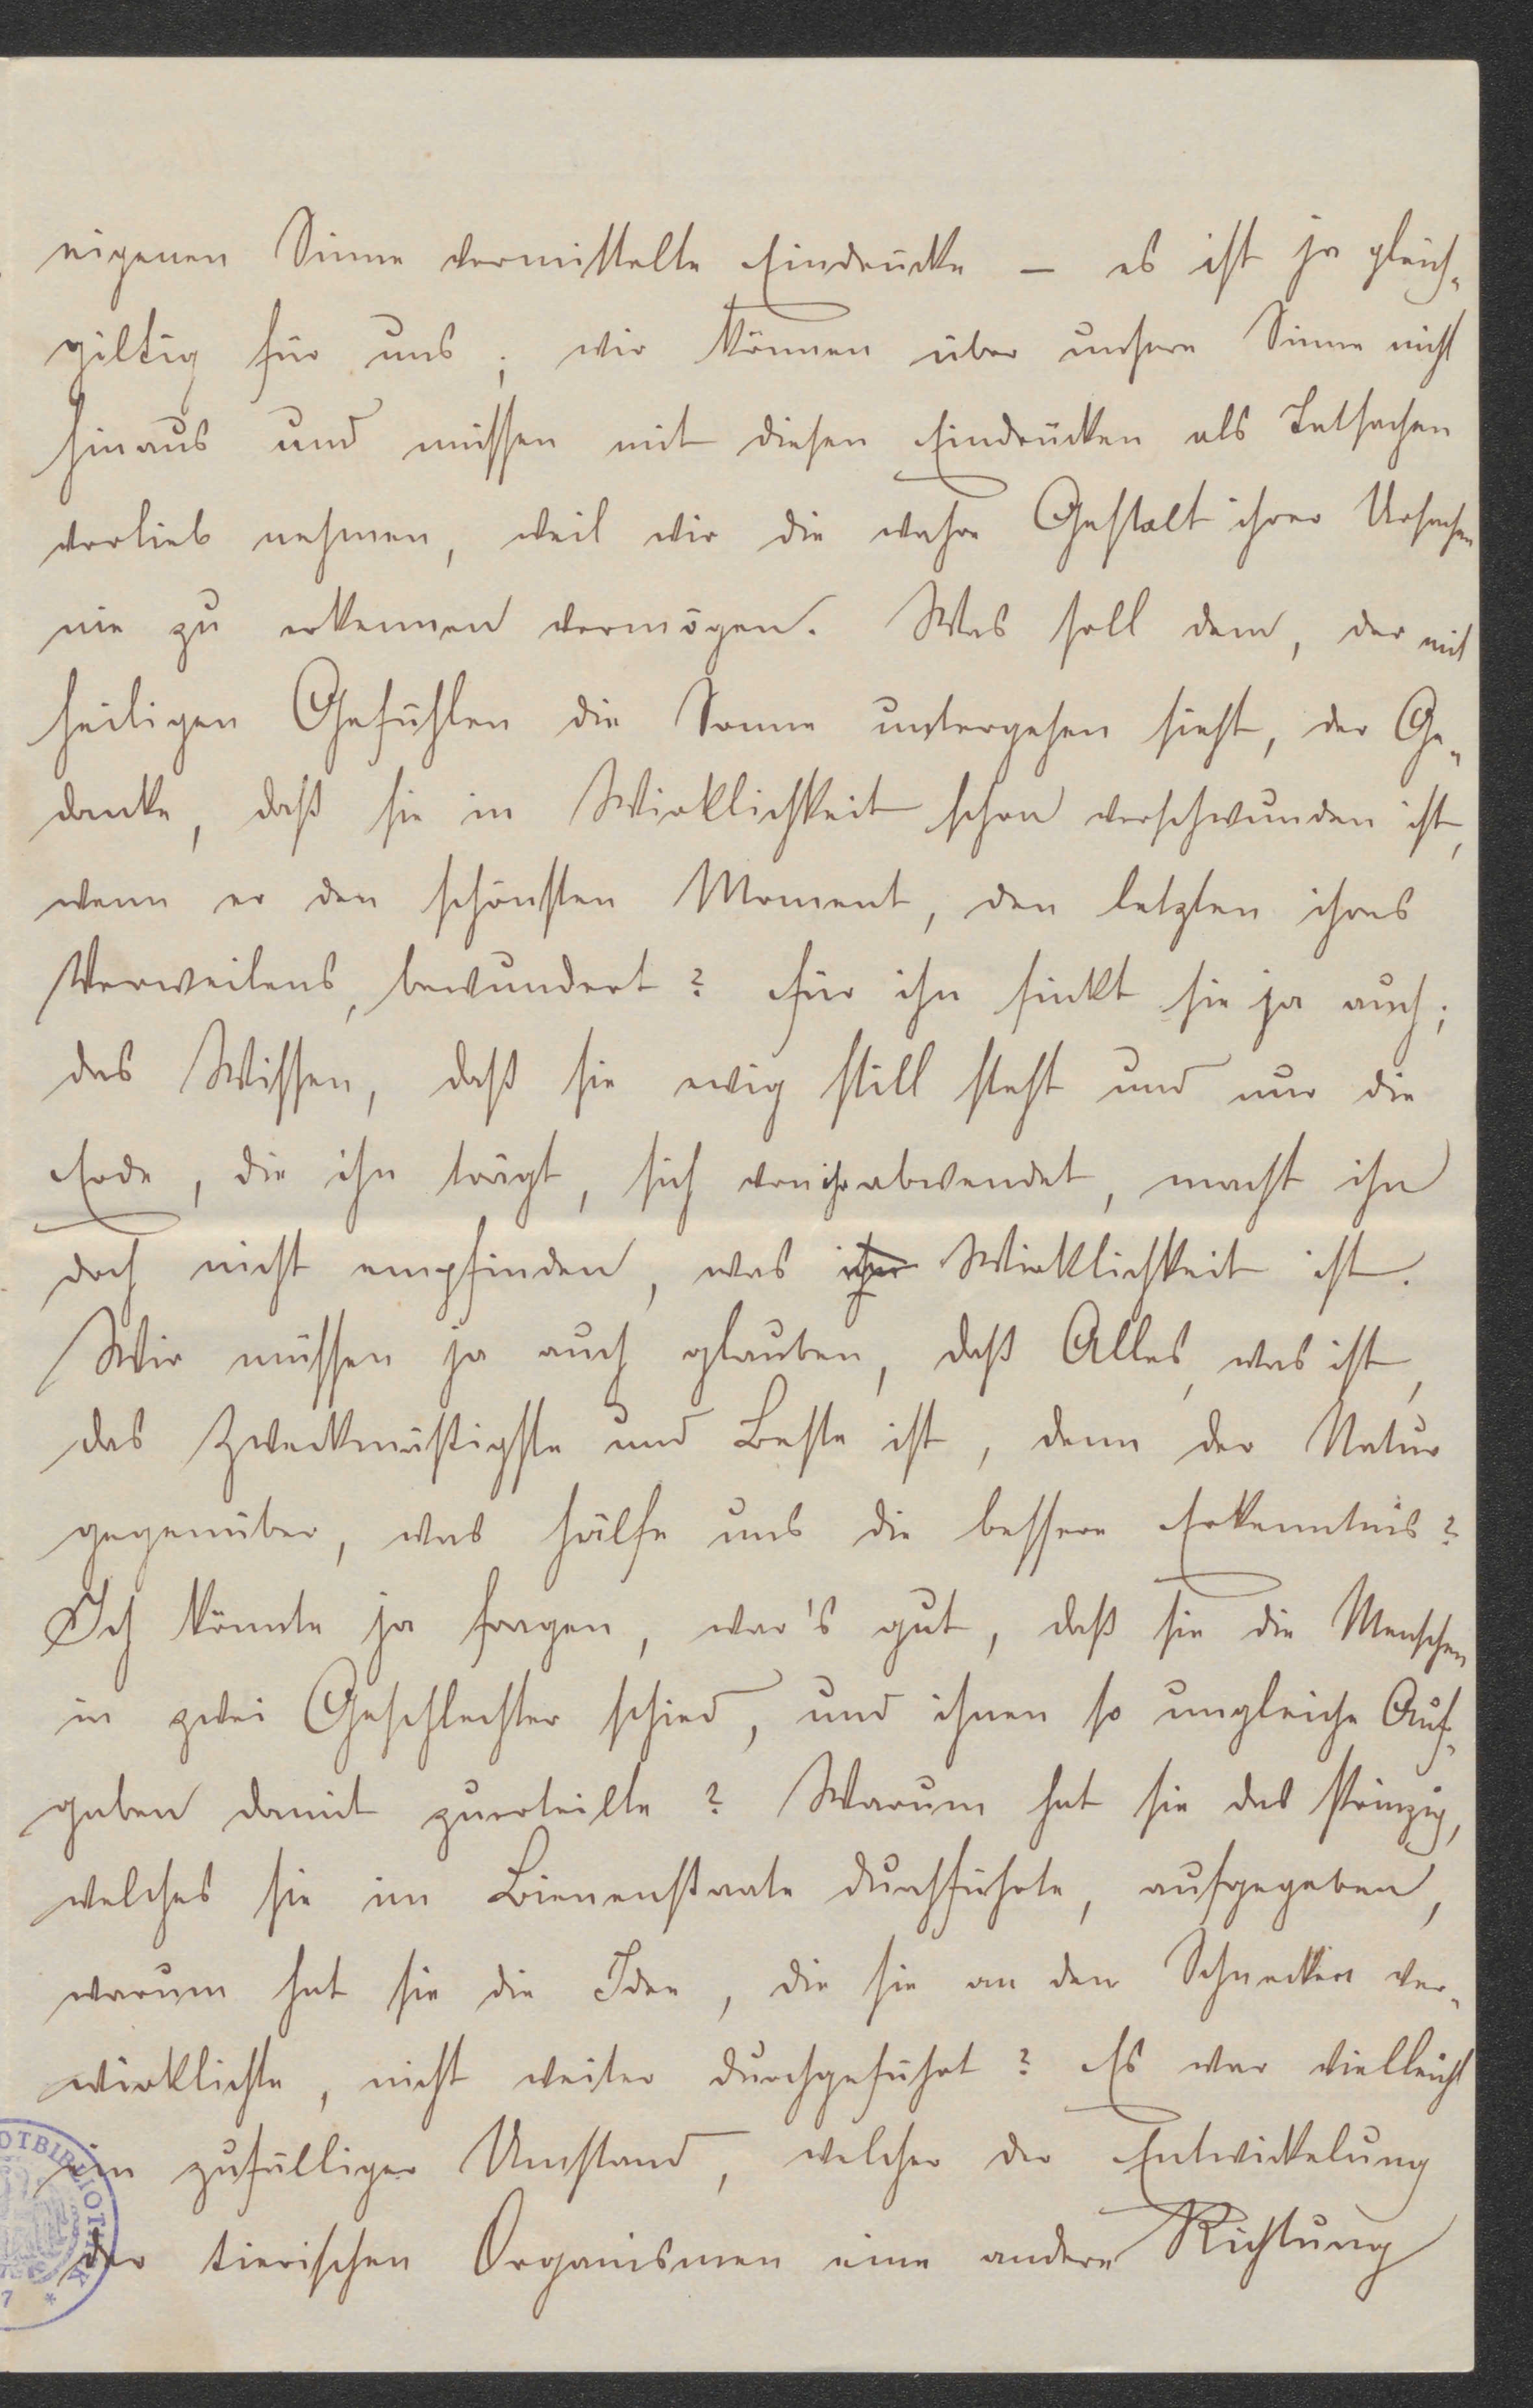 eigenen Sinne vermittelte Eindrücke – es ist ja gleich-
giltig für uns; wir können über unsere Sinne nicht
hinaus und müssen mit diesen Eindrücken als Tatsachen
vorlieb nehmen, weil wir die wahre Gestalt ihrer Ursachen
nie zu erkennen vermögen. Was soll dem, der mit
heiligen Gefühlen die Sonne untergehen sieht, der Ge-
danke, daß sie in Wirklichkeit schon verschwunden ist,
wenn er den schönsten Moment, den letzten ihres
Verweilens, bewundert? Für ihn sinkt sie ja auch;
das Wissen, daß sie ewig still steht und nur die
Erde, die ihn trägt, sich von ihr abwendet, macht ihn
doch nicht empfinden, was Wirklichkeit ist.
Wir müssen ja auch glauben, daß Alles, was ist,
das Zweckmäßigste und Beste ist, denn der Natur
gegenüber, was hälfe uns die bessere Erkenntnis?
Ich könnte ja fragen, war's gut, daß sie die Menschen
in zwei Geschlechter schied, und ihnen so ungleiche Auf-
gaben damit zuerteilte? Warum hat sie das Prinzip,
welches sie im Bienenstaate durchführte, aufgegeben,
warum hat sie die Idee, die sie an den Schnecken ver-
wirklichte, nicht weiter durchgeführt? Es war vielleicht
ein zufälliger Umstand, welcher der Entwickelung
der tierischen Organismen eine andere Richtung